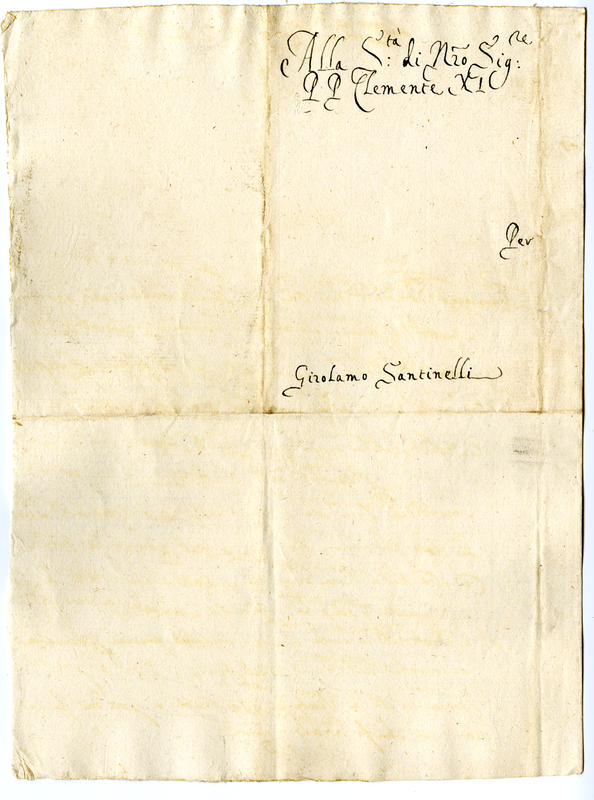 Alla S:tà di Nr̃o Sig:re
PP Clemente XI
Per
Girolamo Santinelli